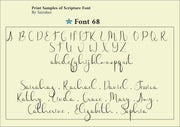 Print Samples of Scripture Font
By Sairahaz
★ Font 68
A B C D E F G H I J K L M N O P Q R
S T U V W X Y Z
a b c d e f g h i j k l m n o p q r s t
Rachael, Daniel, Jessica
Kathy, Linda, Grace, Mary, Amy,
Catherine, Elizabeth, Sophia